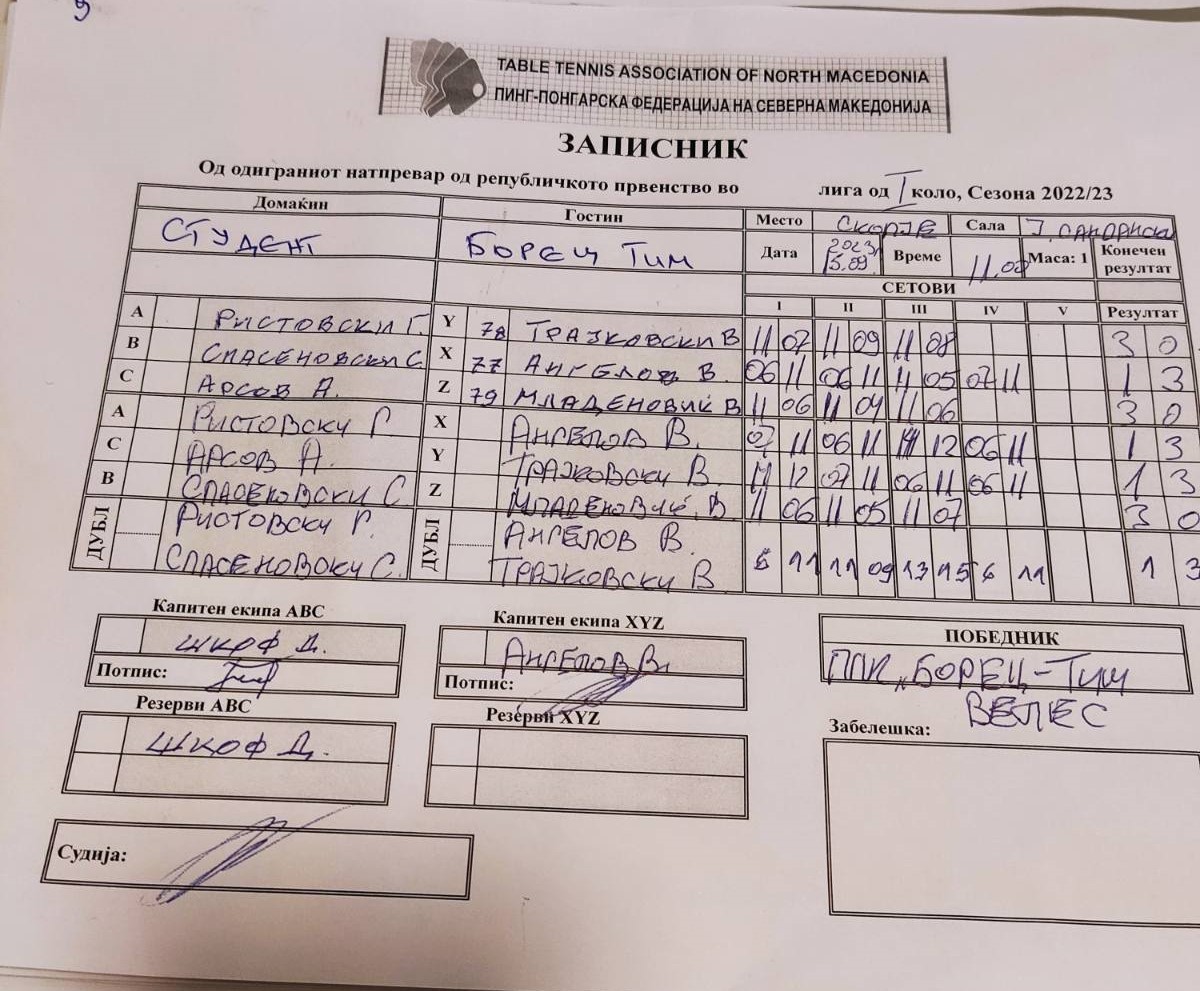 9
TABLE TENNIS ASSOCIATION OF NORTH MACEDONIA
ПИНГ-ПОНГАРСКА ФЕДЕРАЦИЈА НА СЕВЕРНА МАКЕДОНИЈА
ЗАПИСНИК
Од одиграниот натпревар од републичкото првенство во лига од I коло, Сезона 2022/23
Домаќин Гостин Место СКОПЈЕ Сала
СТУДЕНТ БОРЕЦ ТИМ Дата 2023 Време 11.00 Маса: 1 Конечен резултат
СЕТОВИ
I II III IV V Резултат
A РИСТОВСКИ Г. Y 78 ТРАЈКОВСКИ В 11 07 11 09 11 08 3 0
B СПАСЕНОВСКИ С. X 77 АНГЕЛОВ В. 06 11 06 11 11 05 07 11 1 3
C АРСОВ А. Z 79 МЛАДЕНОВИЌ В 11 06 11 04 11 06 3 0
A РИСТОВСКИ Г X АНГЕЛОВ В. 07 11 06 11 12 06 11 1 3
C АРСОВ А. Y ТРАЈКОВСКИ В. 12 07 11 06 11 06 11 1 3
B СПАСЕНОВСКИ С. Z МЛАДЕНОВИЌ В 11 06 11 05 11 07 3 0
ДУБЛ РИСТОВСКИ Г. ДУБЛ АНГЕЛОВ В.
СПАСЕНОВСКИ С. ТРАЈКОВСКИ В 6 11 11 09 13 15 6 11 1 3
Капитен екипа ABC Капитен екипа XYZ
ШКОФ Д. АНГЕЛОВ В. ПОБЕДНИК
Потпис: Потпис: ППК „БОРЕЦ-ТИМ
ВЕЛЕС
Резерви ABC Резерви XYZ Забелешка:
ШКОФ Д.
Судија: